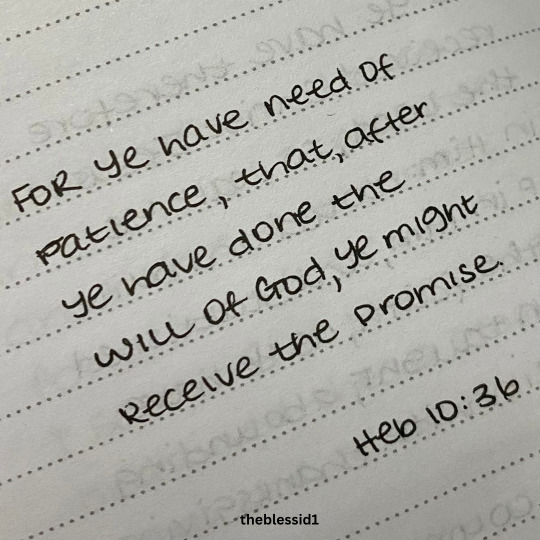 FOR ye have need of
patience, that, after
ye have done the
will of God, ye might
Receive the promise.
Heb 10:36
theblessid1